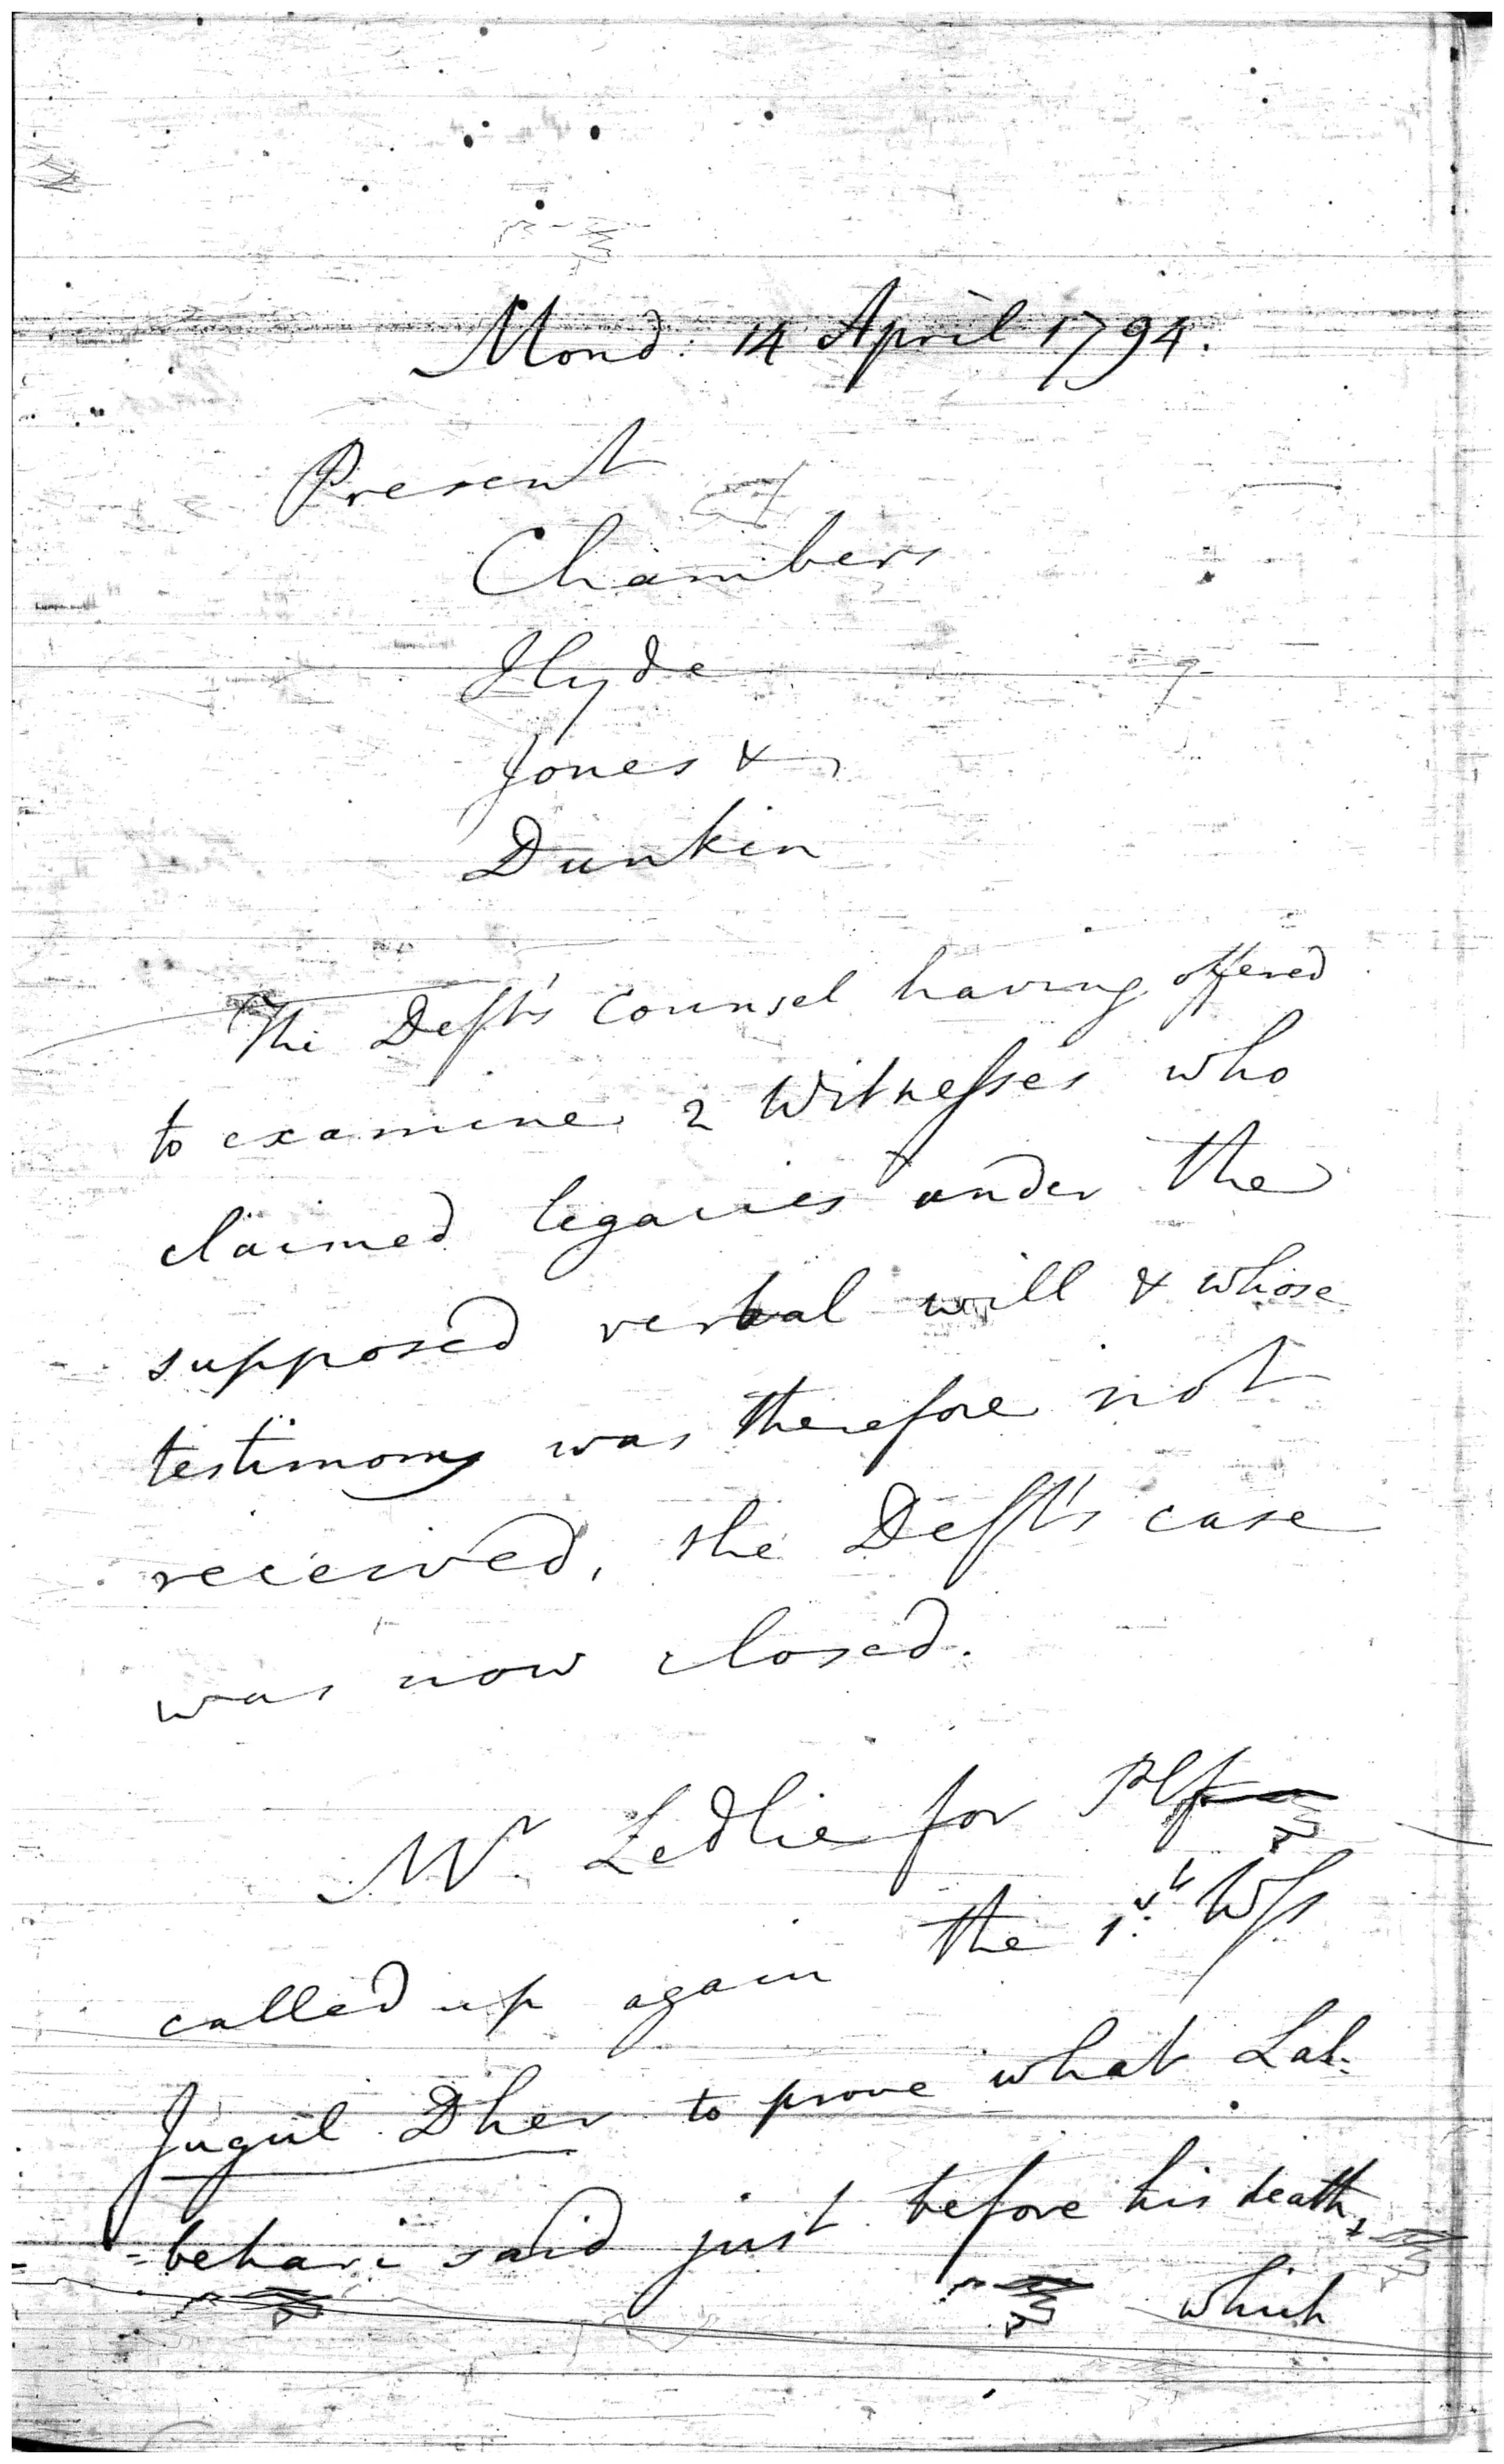 Mond: 14 April 1794.
Present
Chambers
Hyde
Jones &
Dunkin
The Deft's Counsel having offered
to examine 2 Witnesses who
claimed legacies under the
supposed verbal will & whose
testimony was therefore not
received, the Deft's case
was now closed.
Mr. Ledlie for Plf
called up again the 1st Wss
Jugul Dher to prove what Lal=
=behari said just before his death,
which